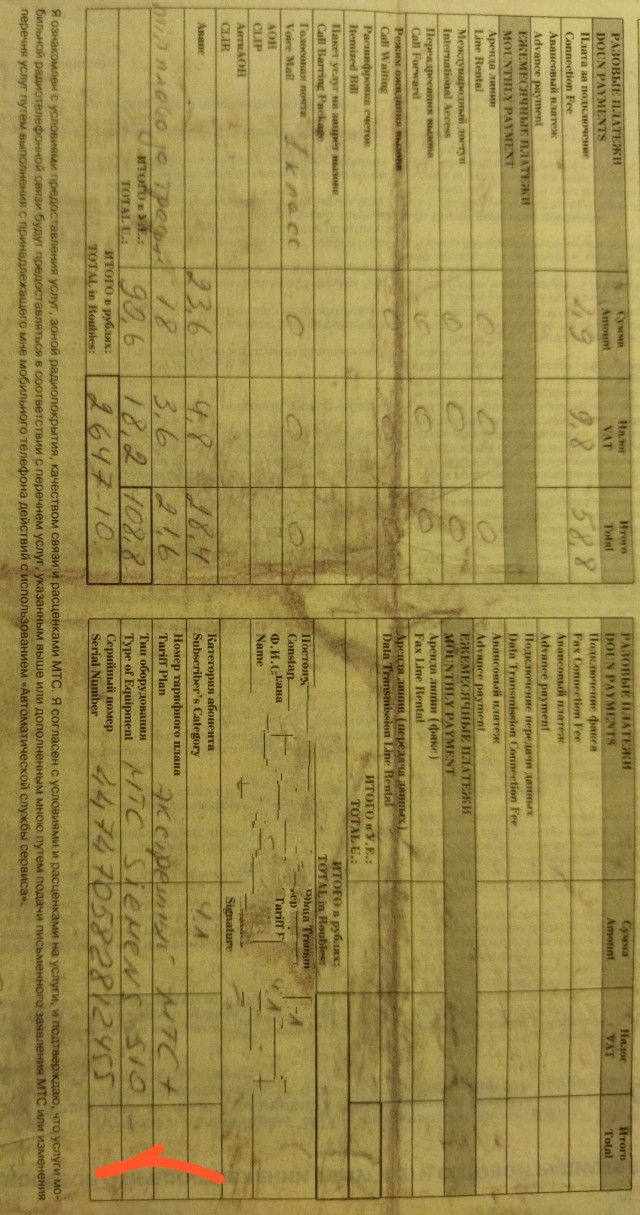 РАЗОВЫЕ ПЛАТЕЖИ Сумма Налог Итого
DOUN PAYMENTS Amount VAT Total
Плата за подключение 49 9,8 58,8
Connection Fee
Авансовый платеж
Advance payment
ЕЖЕМЕСЯЧНЫЕ ПЛАТЕЖИ
MOUNTHLY PAYMENT
Аренда линии 0 0 0
Line Rental
Международный доступ 0 0 0
International Access
Переадресация вызова 0 0 0
Call Forward
Режим ожидания вызова 0 0 0
Call Waiting
Расшифровка счетов
Itemized Bill
Пакет услуг на запрет вызова
Call Barring Package
Голосовая почта 1 класс 0 0 0
Voice Mail
АОН
CLIP
АнтиАОН
CLIR
Аванс 23,6 4,8 28,4
18 3,6 21,6
ИТОГО в У.Е.: 90,6 18,2 108,8
TOTAL U.:
ИТОГО в рублях: 2647-10
TOTAL in Roubles:
РАЗОВЫЕ ПЛАТЕЖИ Сумма Налог Итого
DOUN PAYMENTS Amount VAT Total
Подключение факса
Fax Connection Fee
Авансовый платеж
Advance payment
Подключение передачи данных
Data Transmission Connection Fee
Авансовый платеж
Advance payment
ЕЖЕМЕСЯЧНЫЕ ПЛАТЕЖИ
MOUNTHLY PAYMENT
Аренда линии (факс)
Fax Line Rental
Аренда линии (передача данных)
Data Transmission Line Rental
ИТОГО в У.Е.:
TOTAL U.:
ИТОГО в рублях:
TOTAL in Roubles:
Constan
Name
Tariff P
Signature
Категория абонента Ч.Л
Subscriber's Category
Номер тарифного плана МТС+
Tariff Plan
Тип оборудования МТС Siemens S10
Type of Equipment
Серийный номер 447470582812455
Serial Number
Я ознакомлен с условиями предоставления услуг, зоной радиопокрытия, качеством связи и расценками МТС. Я согласен с условиями и расценками на услуги, и подтверждаю, что услуги мо-
бильной радиотелефонной связи будут предоставляться в соответствии с перечнем услуг, указанным выше или дополненным мною путем подачи письменного заявления МТС или изменения
перечня услуг путем выполнения с принадлежащего мне мобильного телефона действий с использованием «Автоматической службы сервиса».